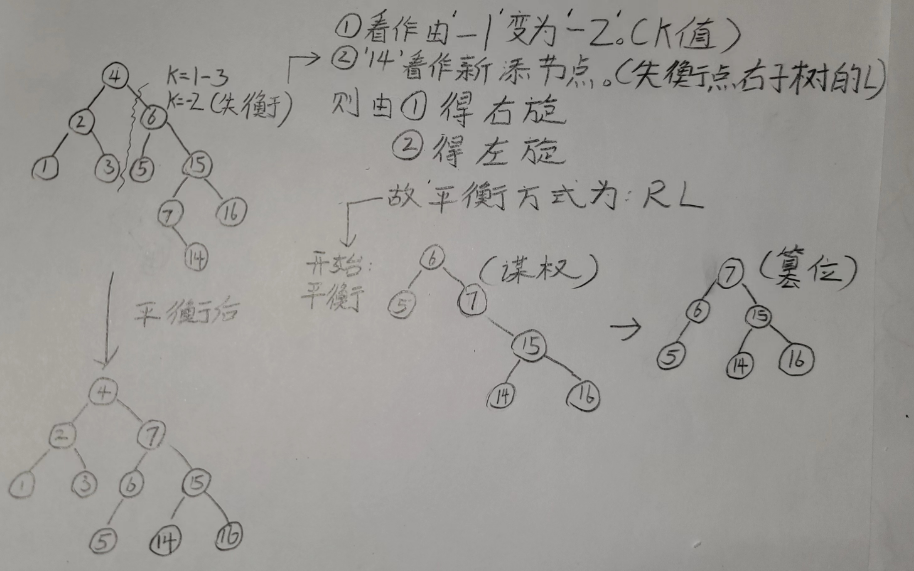 ①看作由'-1'变为'-2'。(K值)
②'14'看作新添节点。(失衡点右子树的L)
则由①得右旋
②得左旋
故平衡方式为:RL
4
K=1-3
K=-2(失衡)
2
6
1
3
5
15
7
16
14
平衡后
开始:
平衡
6
(谋权)
5
7
15
14
16
7
(篡位)
6
15
5
14
16
4
2
7
1
3
6
15
5
14
16